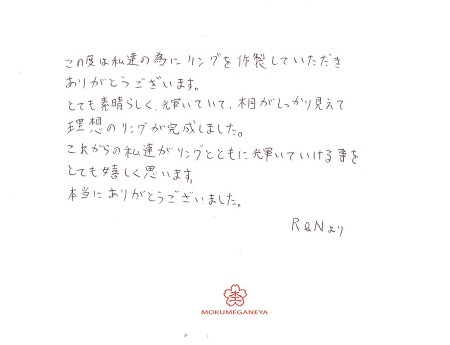 この度は私達の為にリングを作製していただき
ありがとうございます。
とても素晴らしく、輝いていて、木目がしっかり見えて
理想のリングが完成しました。
これからの私達がリングとともに輝いていける事を
とても嬉しく思います。
本当にありがとうございました。
R&Nより
MOKUMEGANEYA